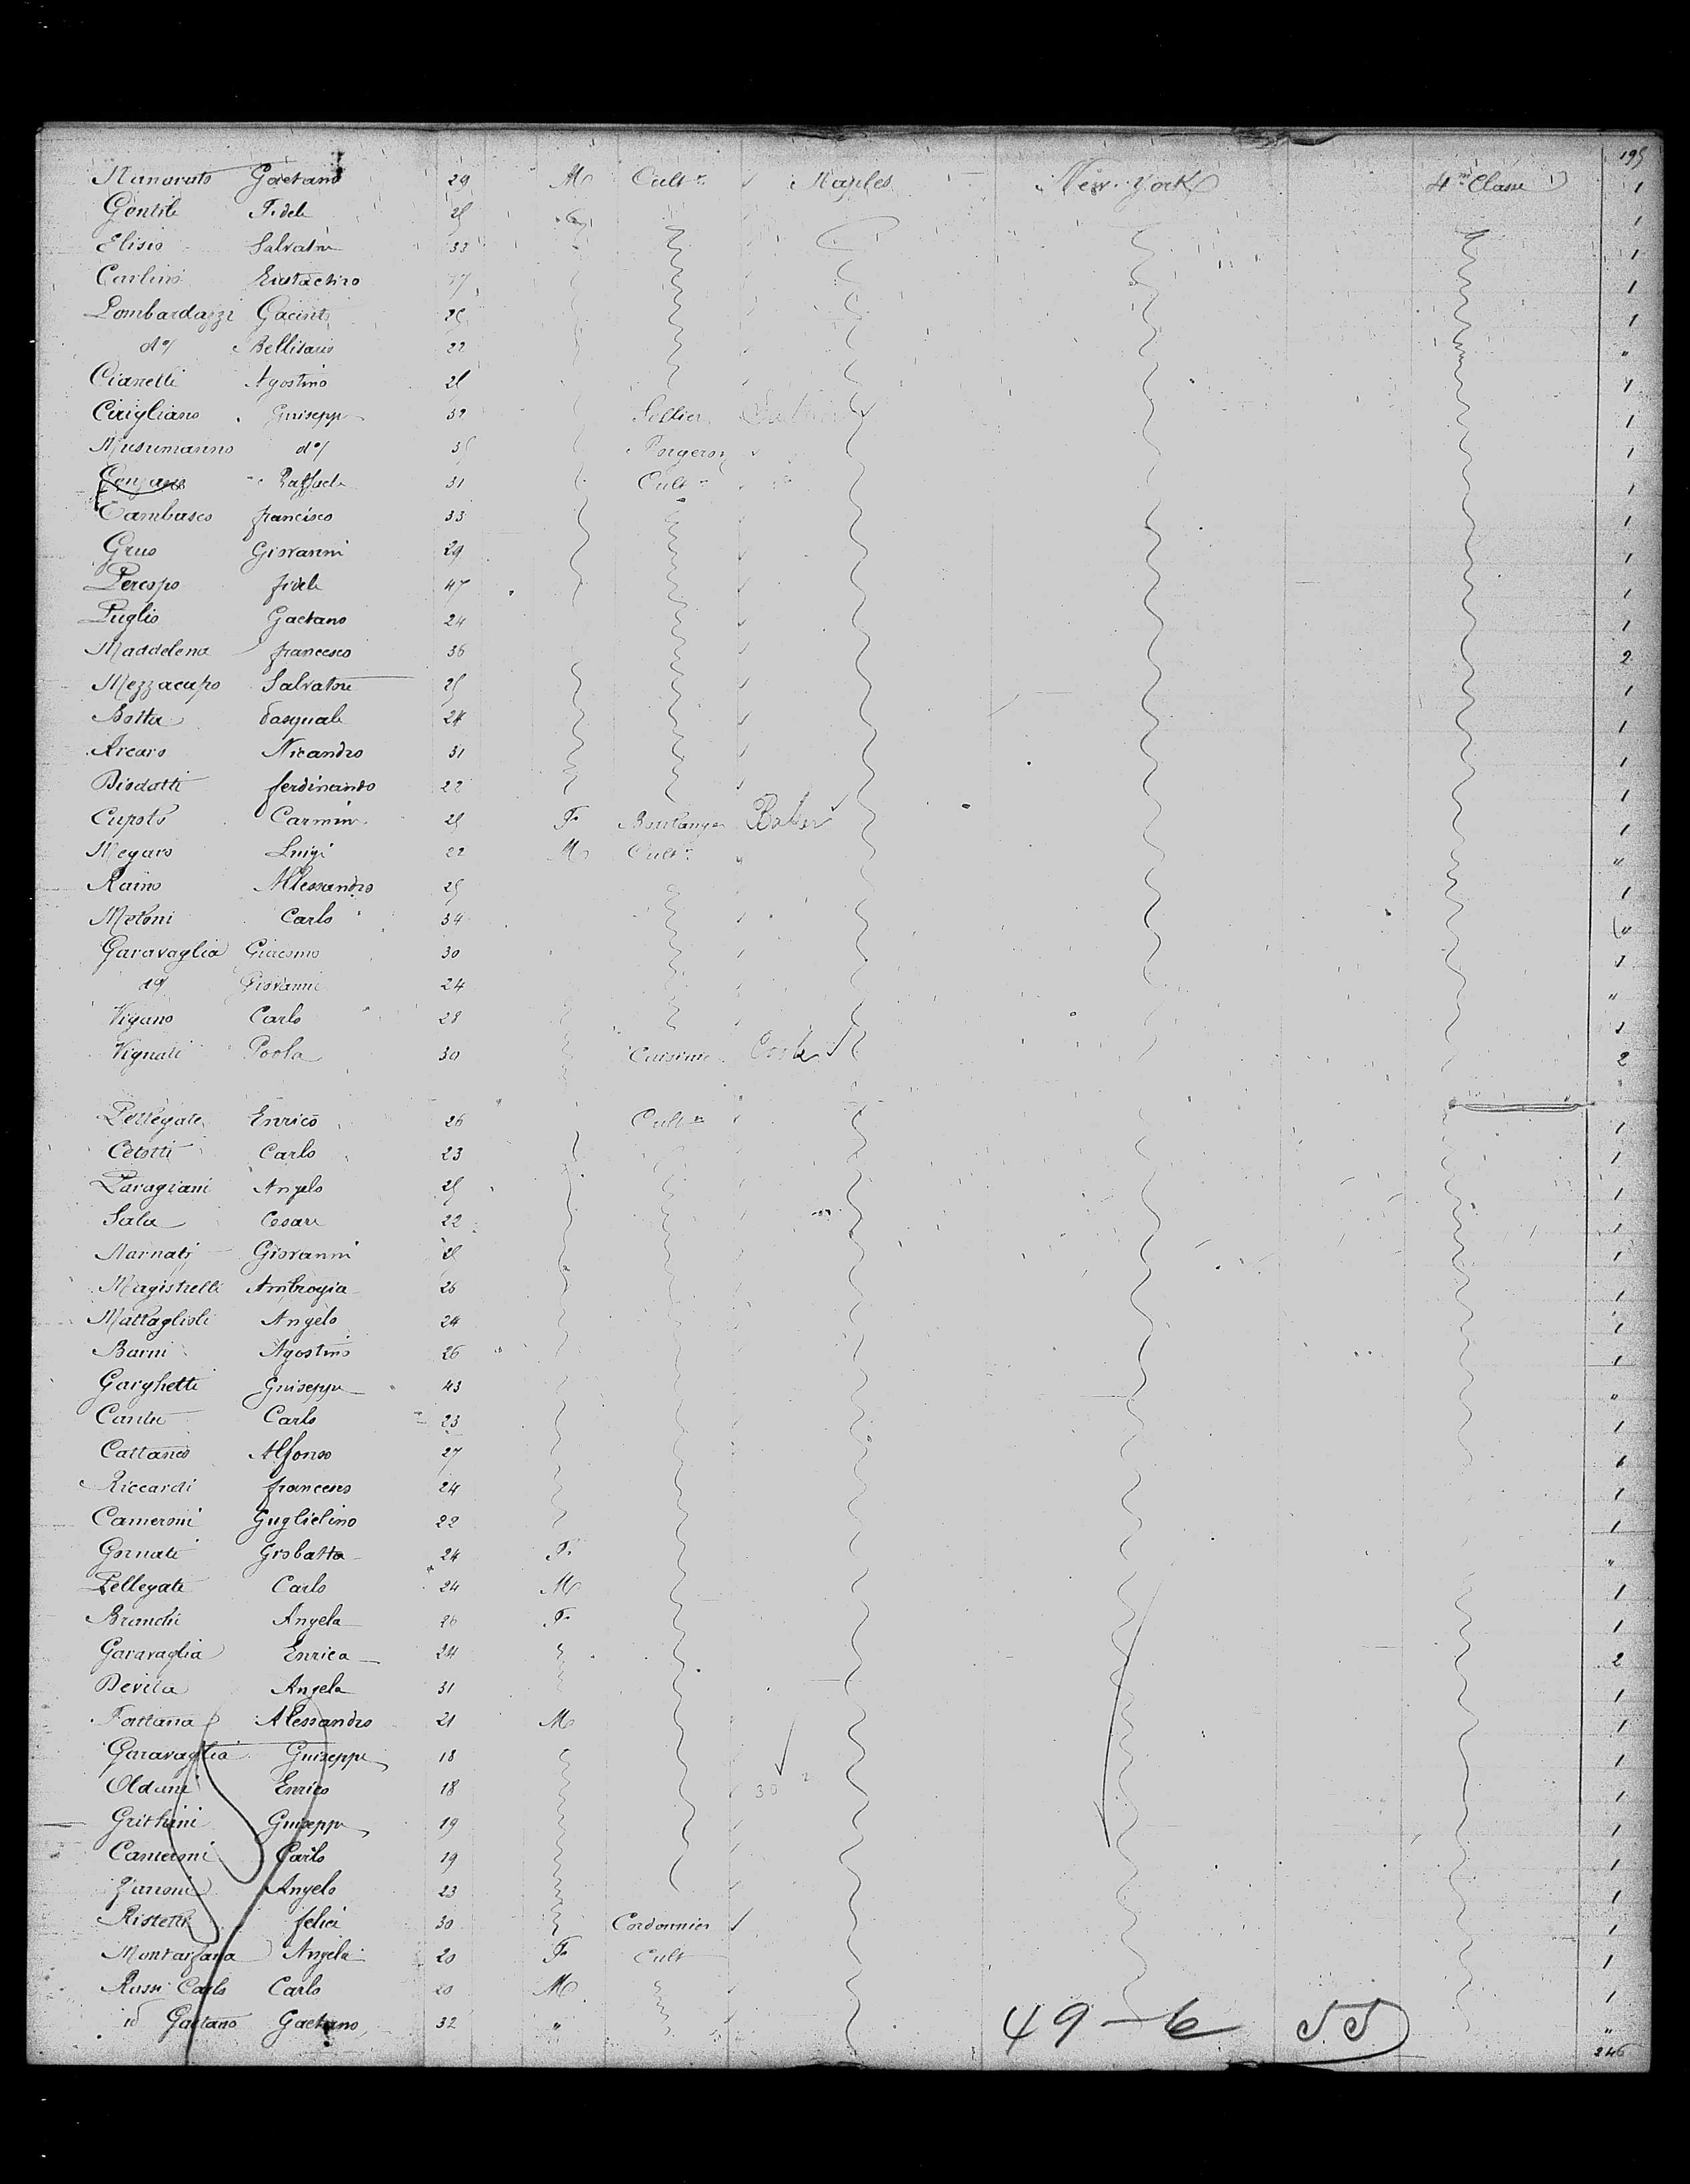 195
Manaruto Gaetano 29 M Cult.r Naples New-York 4.me Classe 1
Gentile Fidele 25 1
Elisio Salvatore 33 1
Carlini Eustachio 1
Lombardazzi Gacinto 25 1
do/ Bellisario 22 "
Cianelli Agostino 25 1
Cirigliano Guiseppe 32 Sellier 1
Musumanno do/ 35 Forgeron 1
Raffaele 31 Cult.r 1
Cambasco francisco 33 1
Grus Giovanni 29 1
Percopo fidele 47 1
Puglio Gaetano 24 1
Maddelena francesco 36 2
Mezzacapo Salvatore 25 1
Botta Pasquale 24 1
Arcaro Nicandro 31 1
Diodatti ferdinando 22 1
Cupoto Carmine 25 F. Boulanger Baker 1
Megaro Luigi 22 M Cult.r "
Raino Allessandro 25 1
Meloni Carlo 34 "
Garavaglia Giacomo 30 1
do/ Giovanni 24 "
Vigano Carlo 28 1
Vignati Paola 30 Cuisinier Cook 2
Pellegate Enrico 26 Cult.r 1
Cetotti Carlo 23 1
Paragiani Angelo 25 1
Sala Cesare 22 1
Marnati Giovanni 25 1
Magistrelli Ambrogia 26 1
Mattaglioli Angelo 24 1
Barni Agostino 26 1
Garghetti Guiseppe 43 "
Cantu Carlo 23 1
Cattaneo Alfonso 27
Riccardi francesco 24 1
Cameroni Guglielino 22 1
Gornati Giobatta 24 F. "
Pellegate Carlo 24 M 1
Branchi Angela 26 F. 1
Garavaglia Enrica 24 2
Devita Angela 31 1
Fontana Alessandro 21 M 1
Garavaglia Guiseppe 18 1
Oldani Enrico 18 30 1
Guiseppe 19 1
Cameroni Carlo 19 1
Zanoni Angelo 23 1
Ristelli felici 30 Cordonnier 1
Montarfana Angela 20 F. Cult 1
Russi Carlo Carlo 20 M 1
id Gaetano Gaetano 32 " "
49-6 246